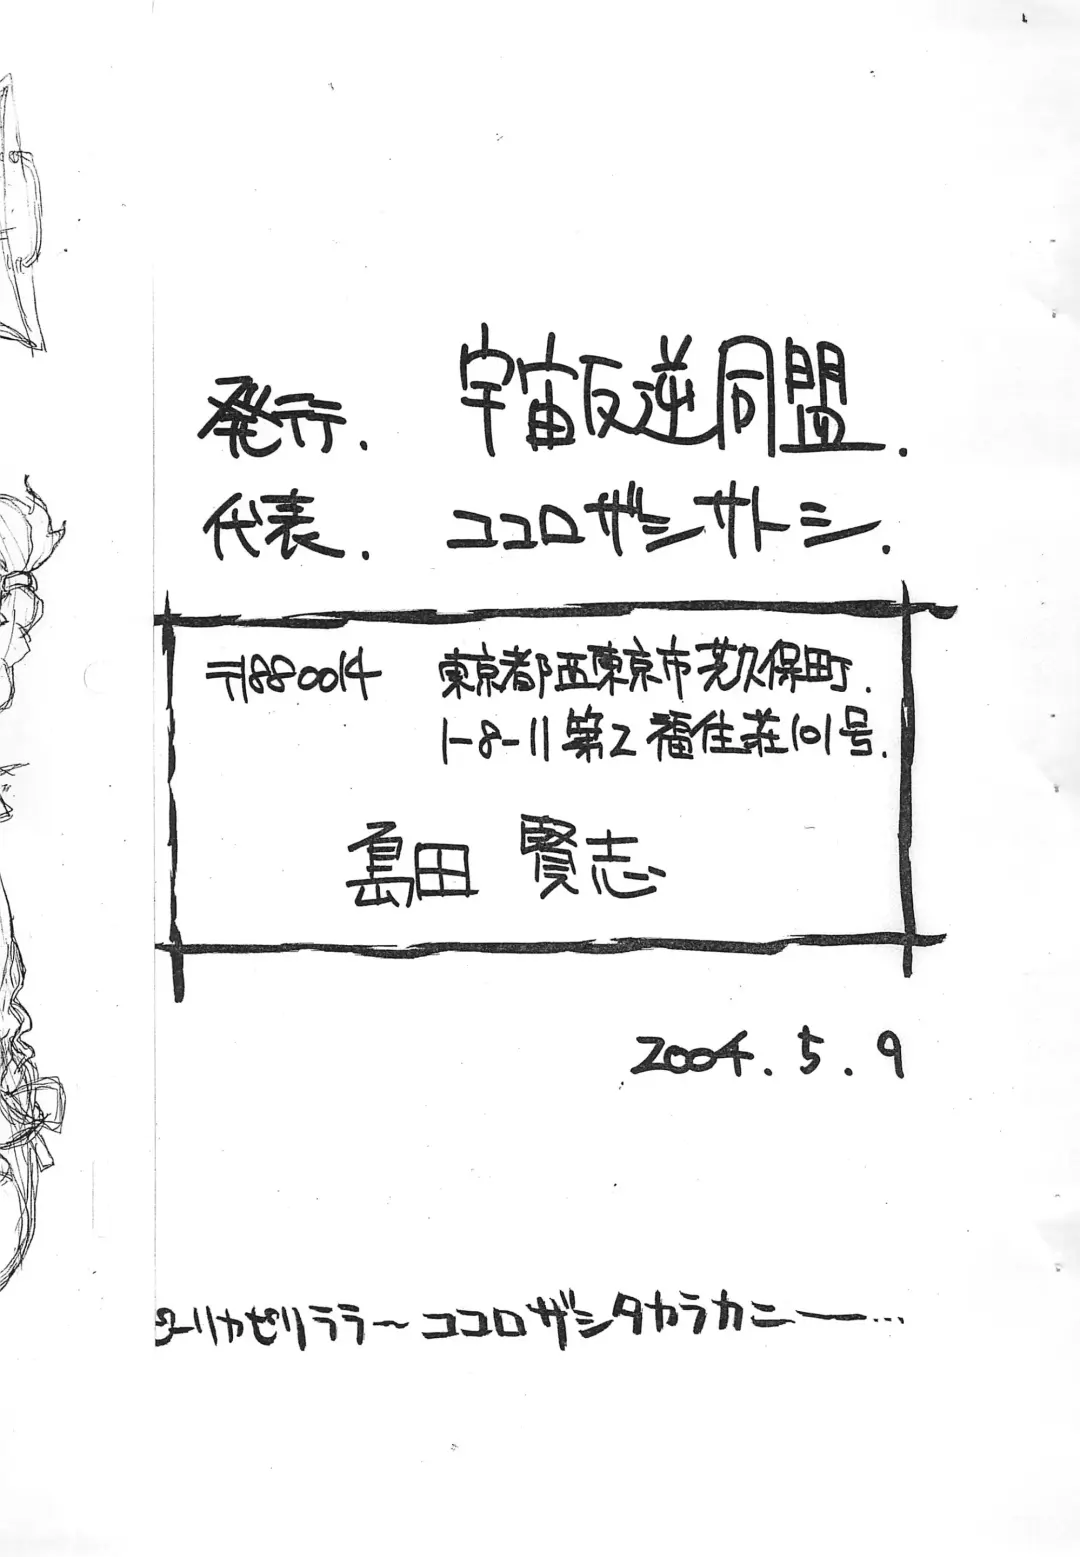 発行. 宇宙反逆同盟.
代表. ココロザシサトシ.
〒1880014 東京都西東京市芝久保町.
1-8-11 第2福住荘101号.
島田 賢志
2004.5.9
ピーリカピリララ〜ココロザシタカラカニー…